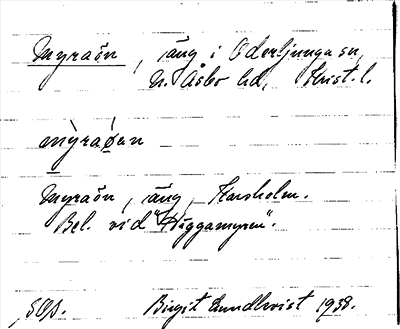 Myraön, äng i Oderljunga sn,
N. Åsbo hd, Krist. l.
mỳraǿan
Myraön, äng, Karsholm.
Bel. vid "Häggamyren".
SOA. Birgit Lundkvist 1938.